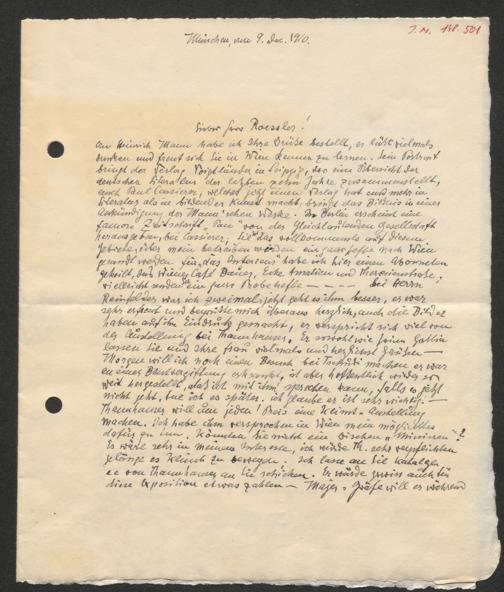 J. N. 148.501
München, am 9. Dec. 1910.
Lieber Herr Roessler!
An Heinrich Mann habe ich Ihre Grüße bestellt, er läßt vielmals
danken und freut sich Sie in Wien kennen zu lernen. Sein Portrait
bringt der Verlag Voigtländer in Leipzig, der eine Übersicht der
deutschen Literaten der letzten zehn Jahre zusammenstellt,
auch Paul Cassierer, welcher jetzt einen Verlag hat und mehr in
Literatur als in bildender Kunst macht, bringt das Bildnis in einer
Ankündigung der Mann'schen Werke. In Berlin erscheint eine
famose Zeitschrift "Pan" von der Gleichlautenden Gesellschaft
herausgegeben, bei Cassierer, die das vollkommenste auf diesem
Gebiete ist,
gesandt werden für "das Interieur" habe ich hier einen Abonnenten
geholt, das Wiener Café Ecke Amalien und Theresienstraße,
vielleicht senden ein paar Probehefte — — — — bei Herrn
Reinfelder war ich zweimal, jetzt geht es ihm besser, er war
sehr erfreut und begrüßte mich überaus herzlich, auch die Bilder
haben auf ihn Eindruck gemacht, er verspricht sich viel von
der Ausstellung bei Thannhauser. Er sowohl wie seine Gattin
lassen Sie und Ihre Frau vielmals und herzlichst Grüßen —
Morgen will ich noch einen Besuch bei Tschudi machen er war
an einer Blutvergiftung erkrankt, ist aber hoffentlich wieder so
weit hergestellt, daß ich mit ihm sprechen kann, falls es jetzt
nicht geht, tue ich es später. ich glaube er ist sehr wichtig. —
Thannhauser will um jeden Preis eine Klimt-Ausstellung
machen. Ich habe ihm versprochen in Wien mein möglichstes
dafür zu tun. Könnten Sie nicht ein bischen "Minieren"?
Es wäre sehr in meinem Interesse, ich würde Th. sehr verpflichten
gelänge es Klimt zu bewegen. Ich lasse an Sie Kataloge
von Thannhauser an Sie schicken. Er würde gewiss auch für
diese Exposition etwas zahlen — Majer-Gräfe will er während